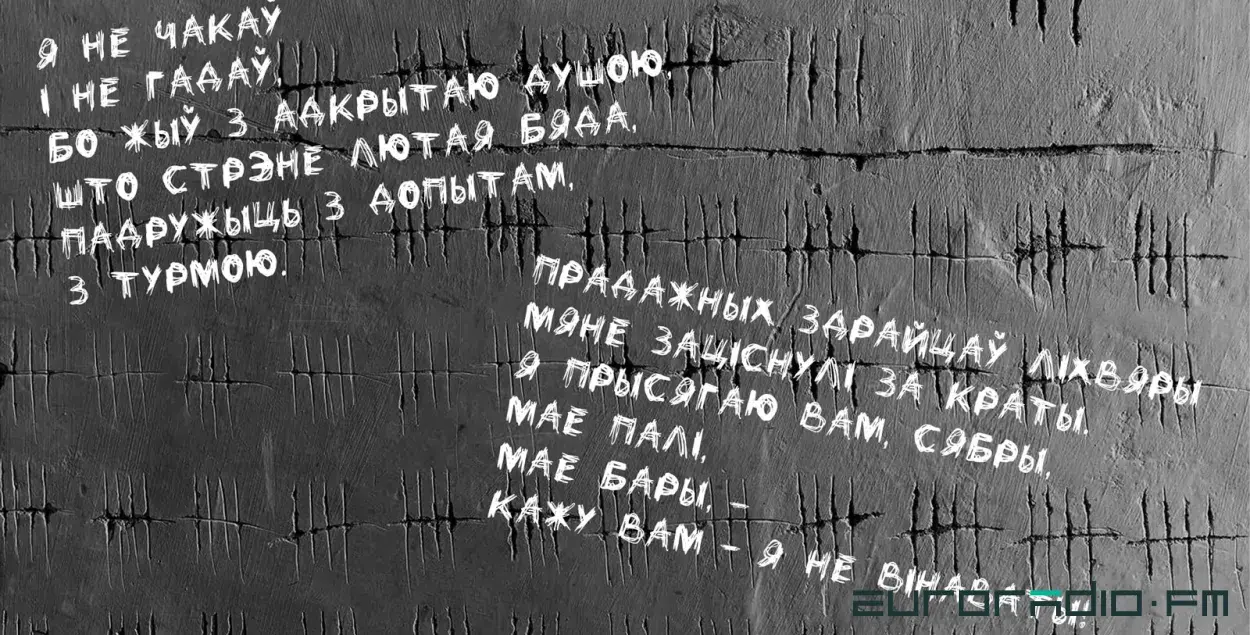 Я НЕ ЧАКАЎ
І НЕ ГАДАЎ,
БО ЖЫЎ З АДКРЫТАЮ ДУШОЮ,
ШТО СТРЭНЕ ЛЮТАЯ БЯДА,
ПАДРУЖЫЦЬ З ДОПЫТАМ,
З ТУРМОЮ.
ПРАДАЖНЫХ ЗДРАЙЦАЎ ЛІХВЯРЫ
МЯНЕ ЗАЦІСНУЛІ ЗА КРАТЫ.
Я ПРЫСЯГАЮ ВАМ, СЯБРЫ,
МАЕ ПАЛІ,
МАЕ БАРЫ, –
КАЖУ ВАМ – Я НЕ ВІНАВАТЫ!
euroradio.fm